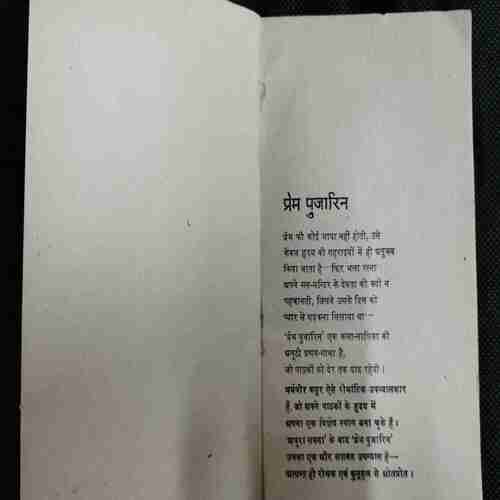 प्रेम पुजारिन
प्रेम की कोई भाषा नहीं होती, उसे
केवल हृदय की गहराइयों में ही अनुभव
किया जाता है—फिर भला रत्ना
अपने मन-मन्दिर के देवता को क्यों न
पहचानती, जिसने उसके दिल को
प्यार से धड़कना सिखाया था—
'प्रेम पुजारिन' एक कला-साधिका की
अनूठी प्रणय-गाथा है,
जो पाठकों को देर तक याद रहेगी।
धर्मवीर कपूर ऐसे रोमांटिक उपन्यासकार
हैं, जो अपने पाठकों के हृदय में
अपना एक विशेष स्थान बना चुके हैं।
'अधूरा सपना' के बाद 'प्रेम पुजारिन'
उनका एक और सशक्त उपन्यास है—
अत्यन्त ही रोचक एवं कुतूहल से ओतप्रोत।